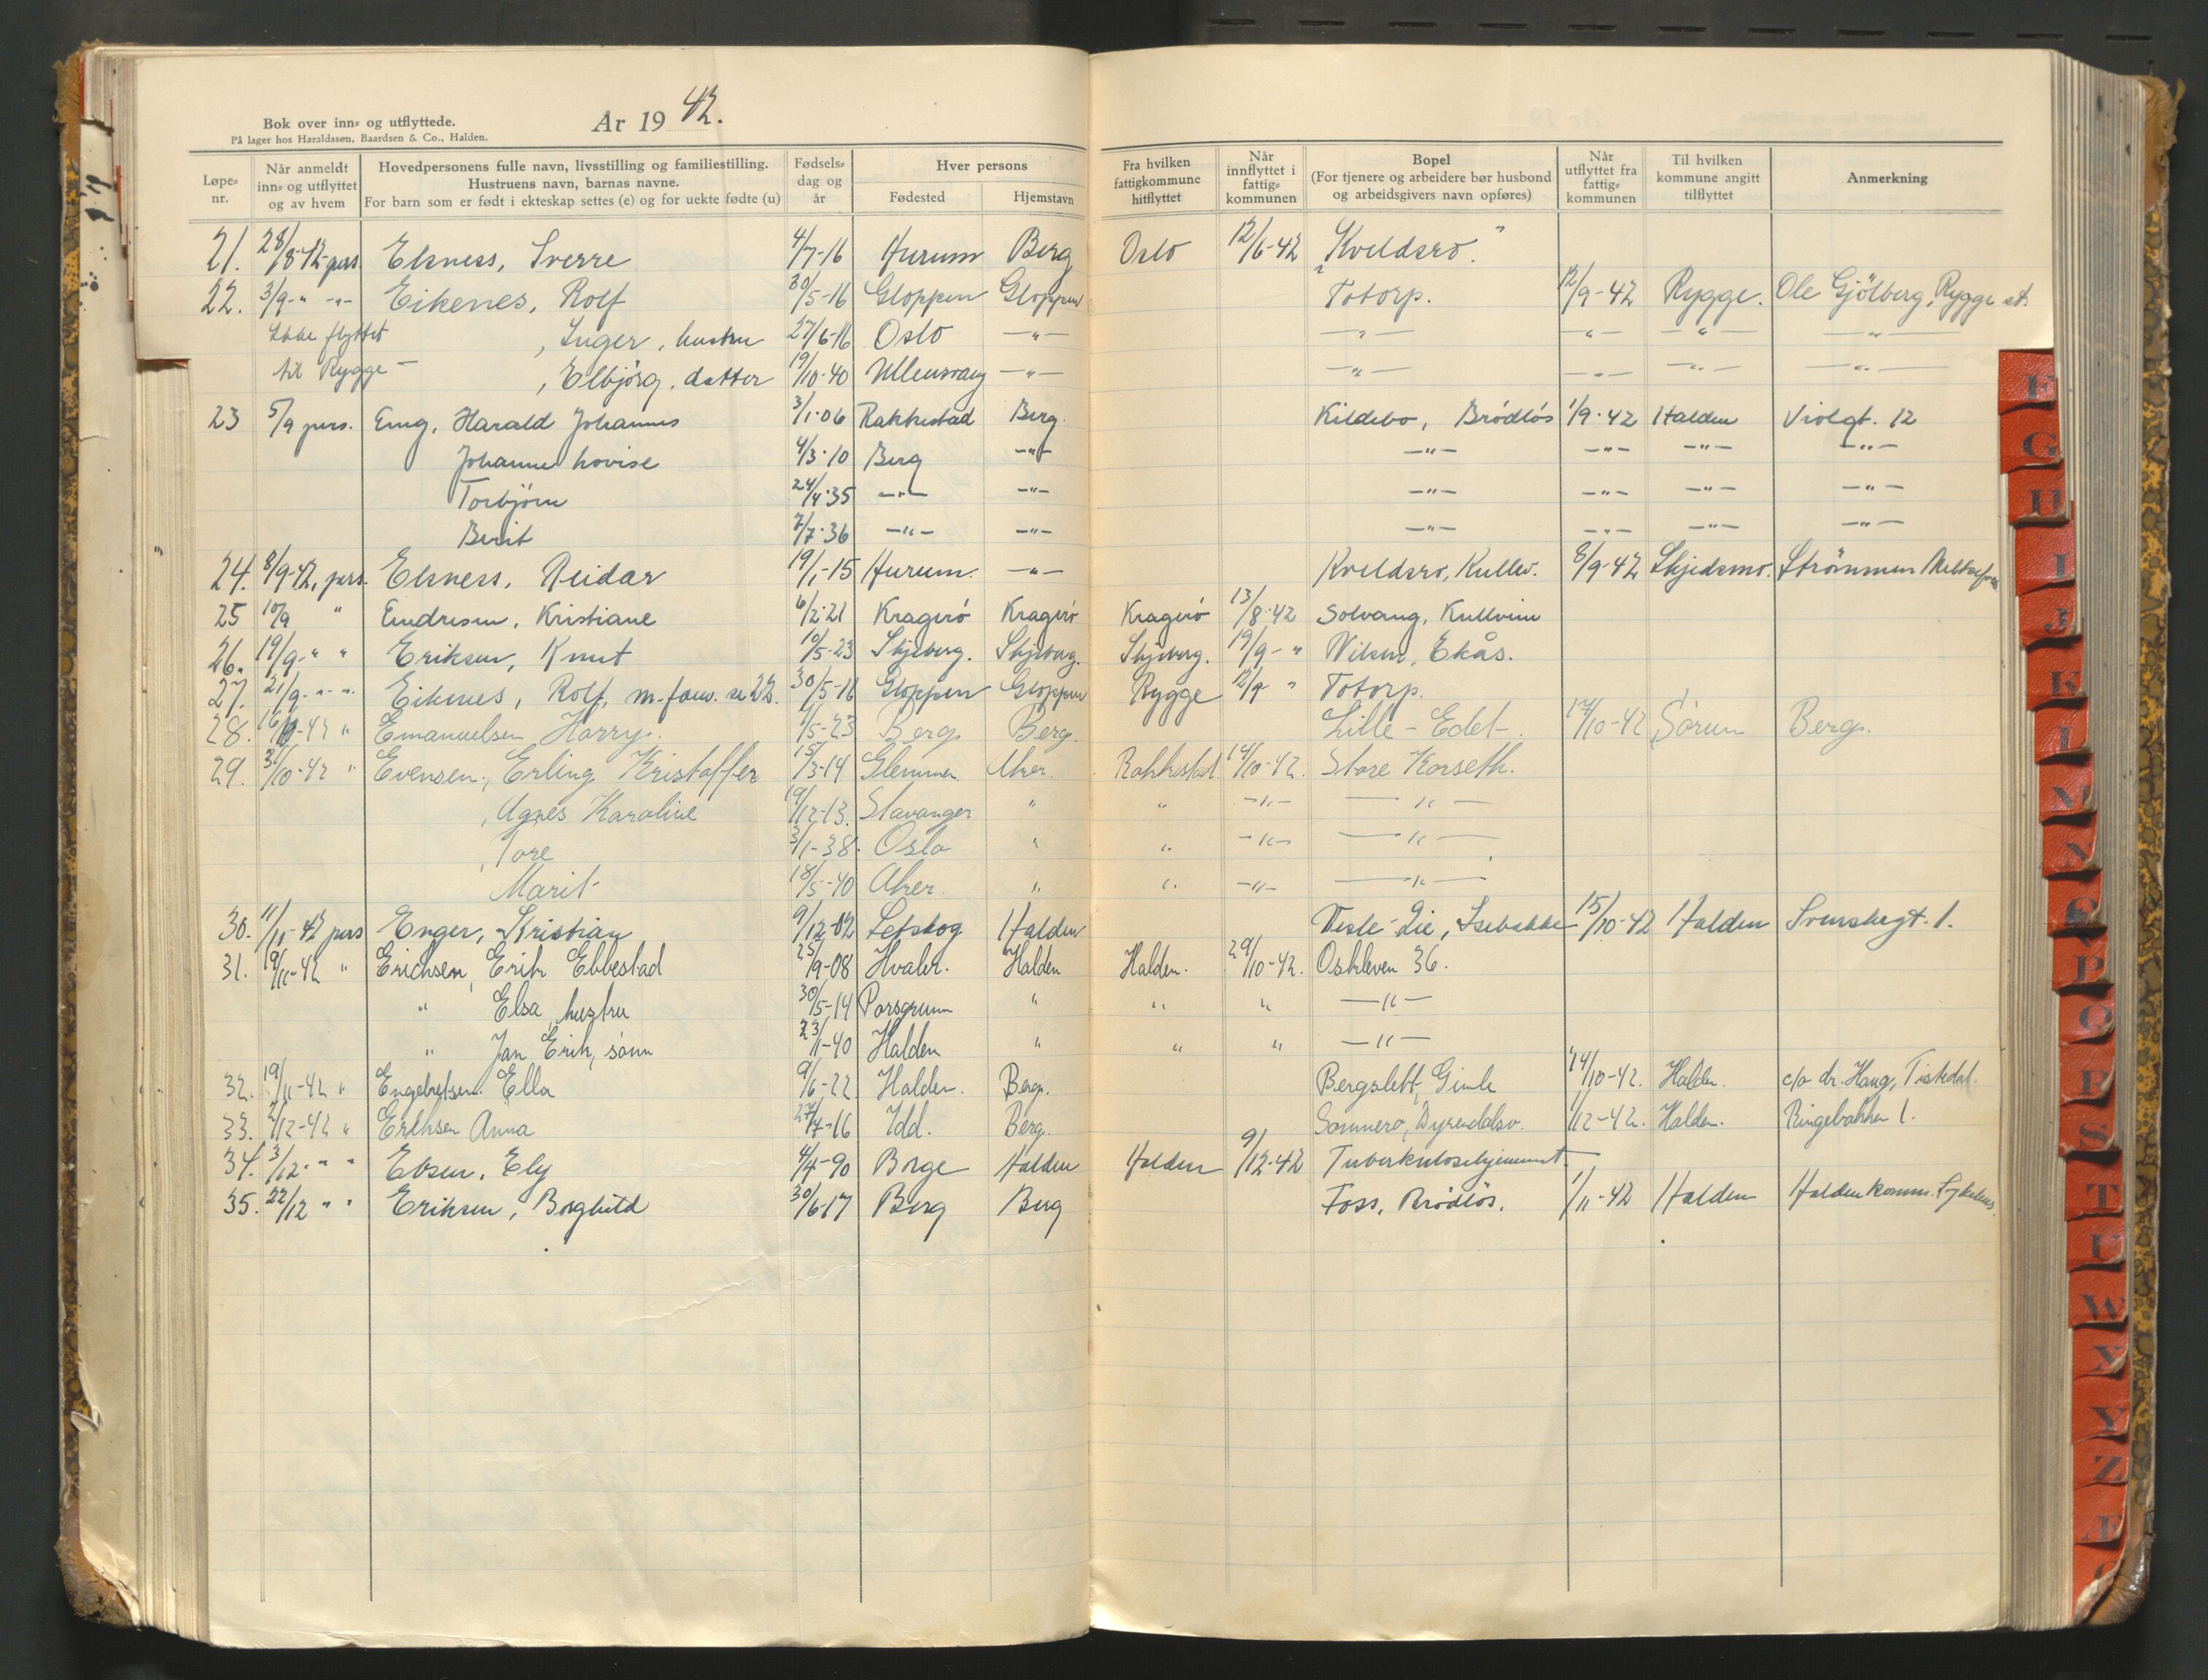 Bok over inn- og utflyttede.
På lager hos Haraldssøn, Baardsen & Co., Halden.
År 19 42.
Løpe-nr. Når anmeldt inn- og utflyttet og av hvem Hovedpersonens fulle navn, livsstilling og familiestilling. Hustruens navn, barnas navne. For barn som er født i ekteskap settes (e) og for uekte fødte (u) Fødsels-dag og år Hver persons Fødested Hjemstavn Fra hvilken fattigkommune hitflyttet Når innflyttet i fattig-kommunen Bopel (For tjenere og arbeidere bør husbond og arbeidsgivers navn opføres) Når utflyttet fra fattig-kommunen Til hvilken kommune angitt tilflyttet Anmerkning
21. 28/8-42 pers. Elsness, Sverre 4/7-16 Hurum Berg Oslo 12/6-42 "Kveldsro".
22. 3/9-" -"- Eikenes, Rolf 30/5-16 Gloppen Gloppen Totorp. 12/9-42 Rygge. Ole Gjölberg, Rygge st.
Ikke flyttet , Inger, hustru 27/6-16 Oslo -"- -"- -"- -"- -"-
til Rygge - , Elbjörg, datter 19/10-40 Ullensvang -"- -"- -"- -"- -"-
23 5/9 pers. Eng, Harald Johannes 3/1-06 Rakkestad Berg. Kildebo, Brödlös 1/9-42 Halden Violgt. 12
Johanne Lovise 4/3-10 Berg -"- -"- -"- -"- -"-
Torbjörn 24/4-35 -"- -"- -"- -"- -"- -"-
Berit 7/7-36 -"- -"- -"- -"- -"- -"-
24. 8/9-42, pers. Elsness, Reidar 19/1-15 Hurum. -"- Kveldsro, Kullev. 8/9-42 Skjedsmo. Strömmen
25 10/9 " Endresen, Kristiane 6/2-21 Kragerö Kragerö Kragerö 13/8-42 Solvang, Kullvien
26. 19/9-" " Eriksen, Knut 10/5-23 Skjeberg. Skjeberg. Skjeberg. 19/9-" Viken, Ekås.
27. 21/9-"-". Eikenes, Rolf, m. fam. se 22. 30/5-16 Gloppen Gloppen Rygge 12/9 " Totorp.
28. 16/10-42 " Emanuelsen Harry. 1/5-23 Berg. Berg. Lille-Edet. 17/10-42 Sörum Berg.
29. 31/10-42 " Evensen, Erling Kristoffer 15/3-14 Glemmen Aker. Rakkestad 14/10-42. Store Korseth.
, Agnes Karoline 19/12-13. Stavanger " " -"- -"-
, Tore 3/1-38. Oslo " " -"- -"-
Marit 18/5-40 Aker. " " -"- -"-
30. 11/11-42 pers Enger, Kristian 9/12-02 Setskog Halden Vesle-Lie, Isebakke 15/10-42 Halden Svenskegt. 1.
31. 19/11-42 " Erichsen, Erik Ebbestad 25/9-08 Hvaler. Halden Halden. 29/10-42. Oskleven 36.
" Elsa, hustru 30/5-14 Porsgrunn " " " -"-
" Jan Erik, sönn 23/11-40 Halden " " " -"-
32. 19/11-42 " Engebretsen. Ella 9/6-22 Halden. Berg. Bergslett, Gimle 14/10-42. Halden. c/o dr. Haug, Tistedal.
33. 2/12-42 " Eriksen Anna 27/7-16 Idd. Berg. Sommero, Dyrendalsv. 1/12-42. Halden. Ringebakken 1.
34. 3/12-" " Ebsen, Ely 4/4-90 Borge Halden Halden 9/12-42 Tuberkulosehjemmet
35. 22/12 " " Eriksen, Borghild 30/6-17 Berg Berg Foss, Brödlös. 1/11-42 Halden Halden komm. Sykehus.
F
G
H
I
J
K
L
M
N
O
P
Q
R
S
T
U
W
X
Y
Z